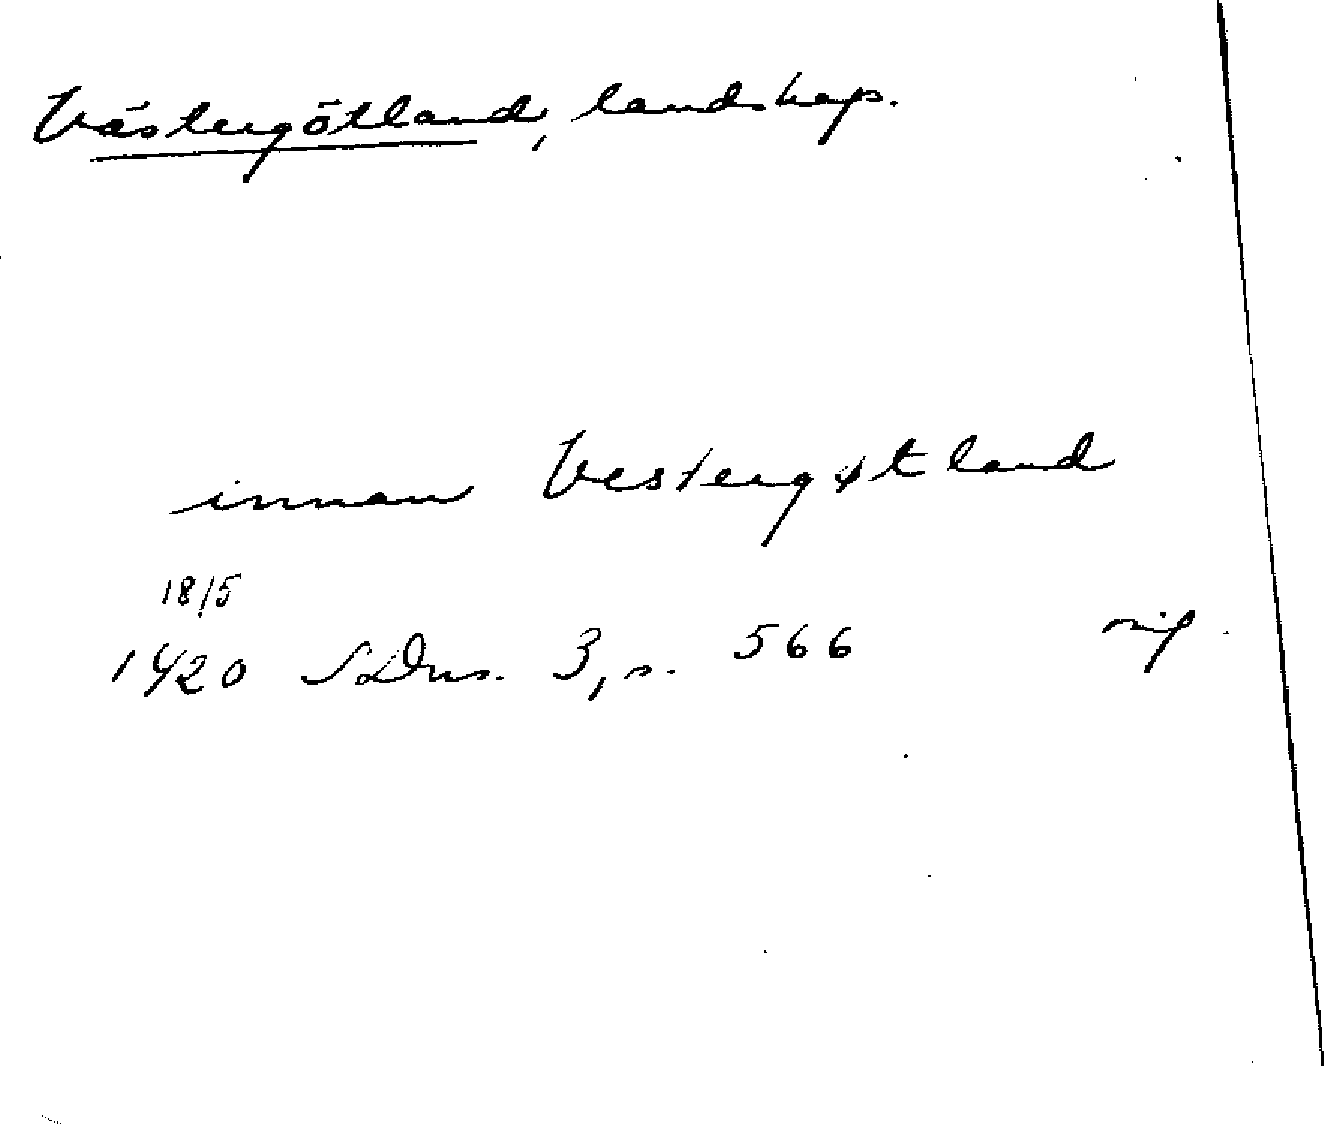 Västergötland, landskap.
innan Vestergøtland
18/5
1420 SDns. 3, s. 566